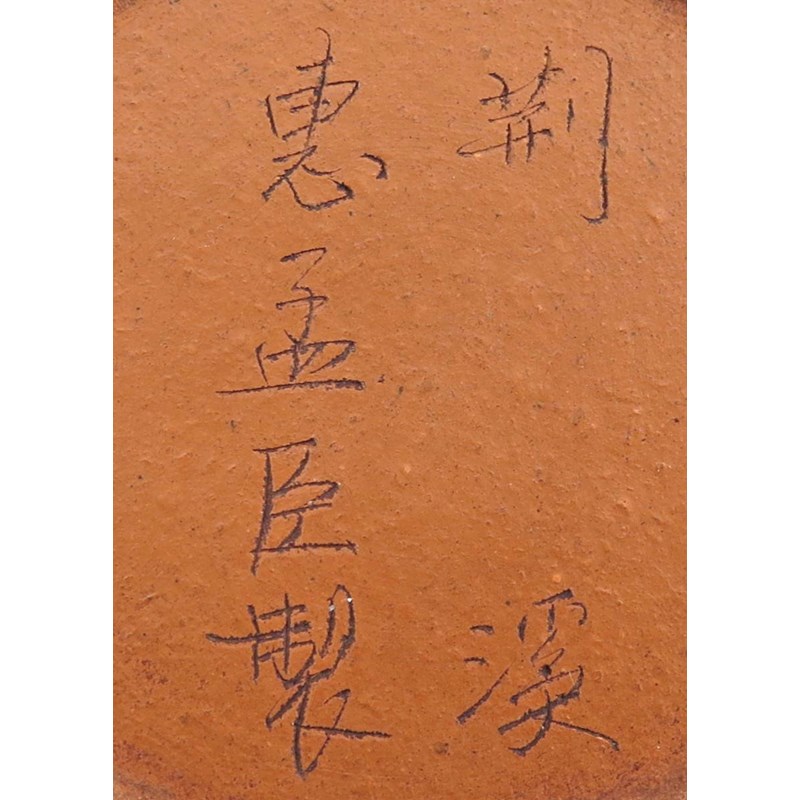 荆溪
惠孟臣製